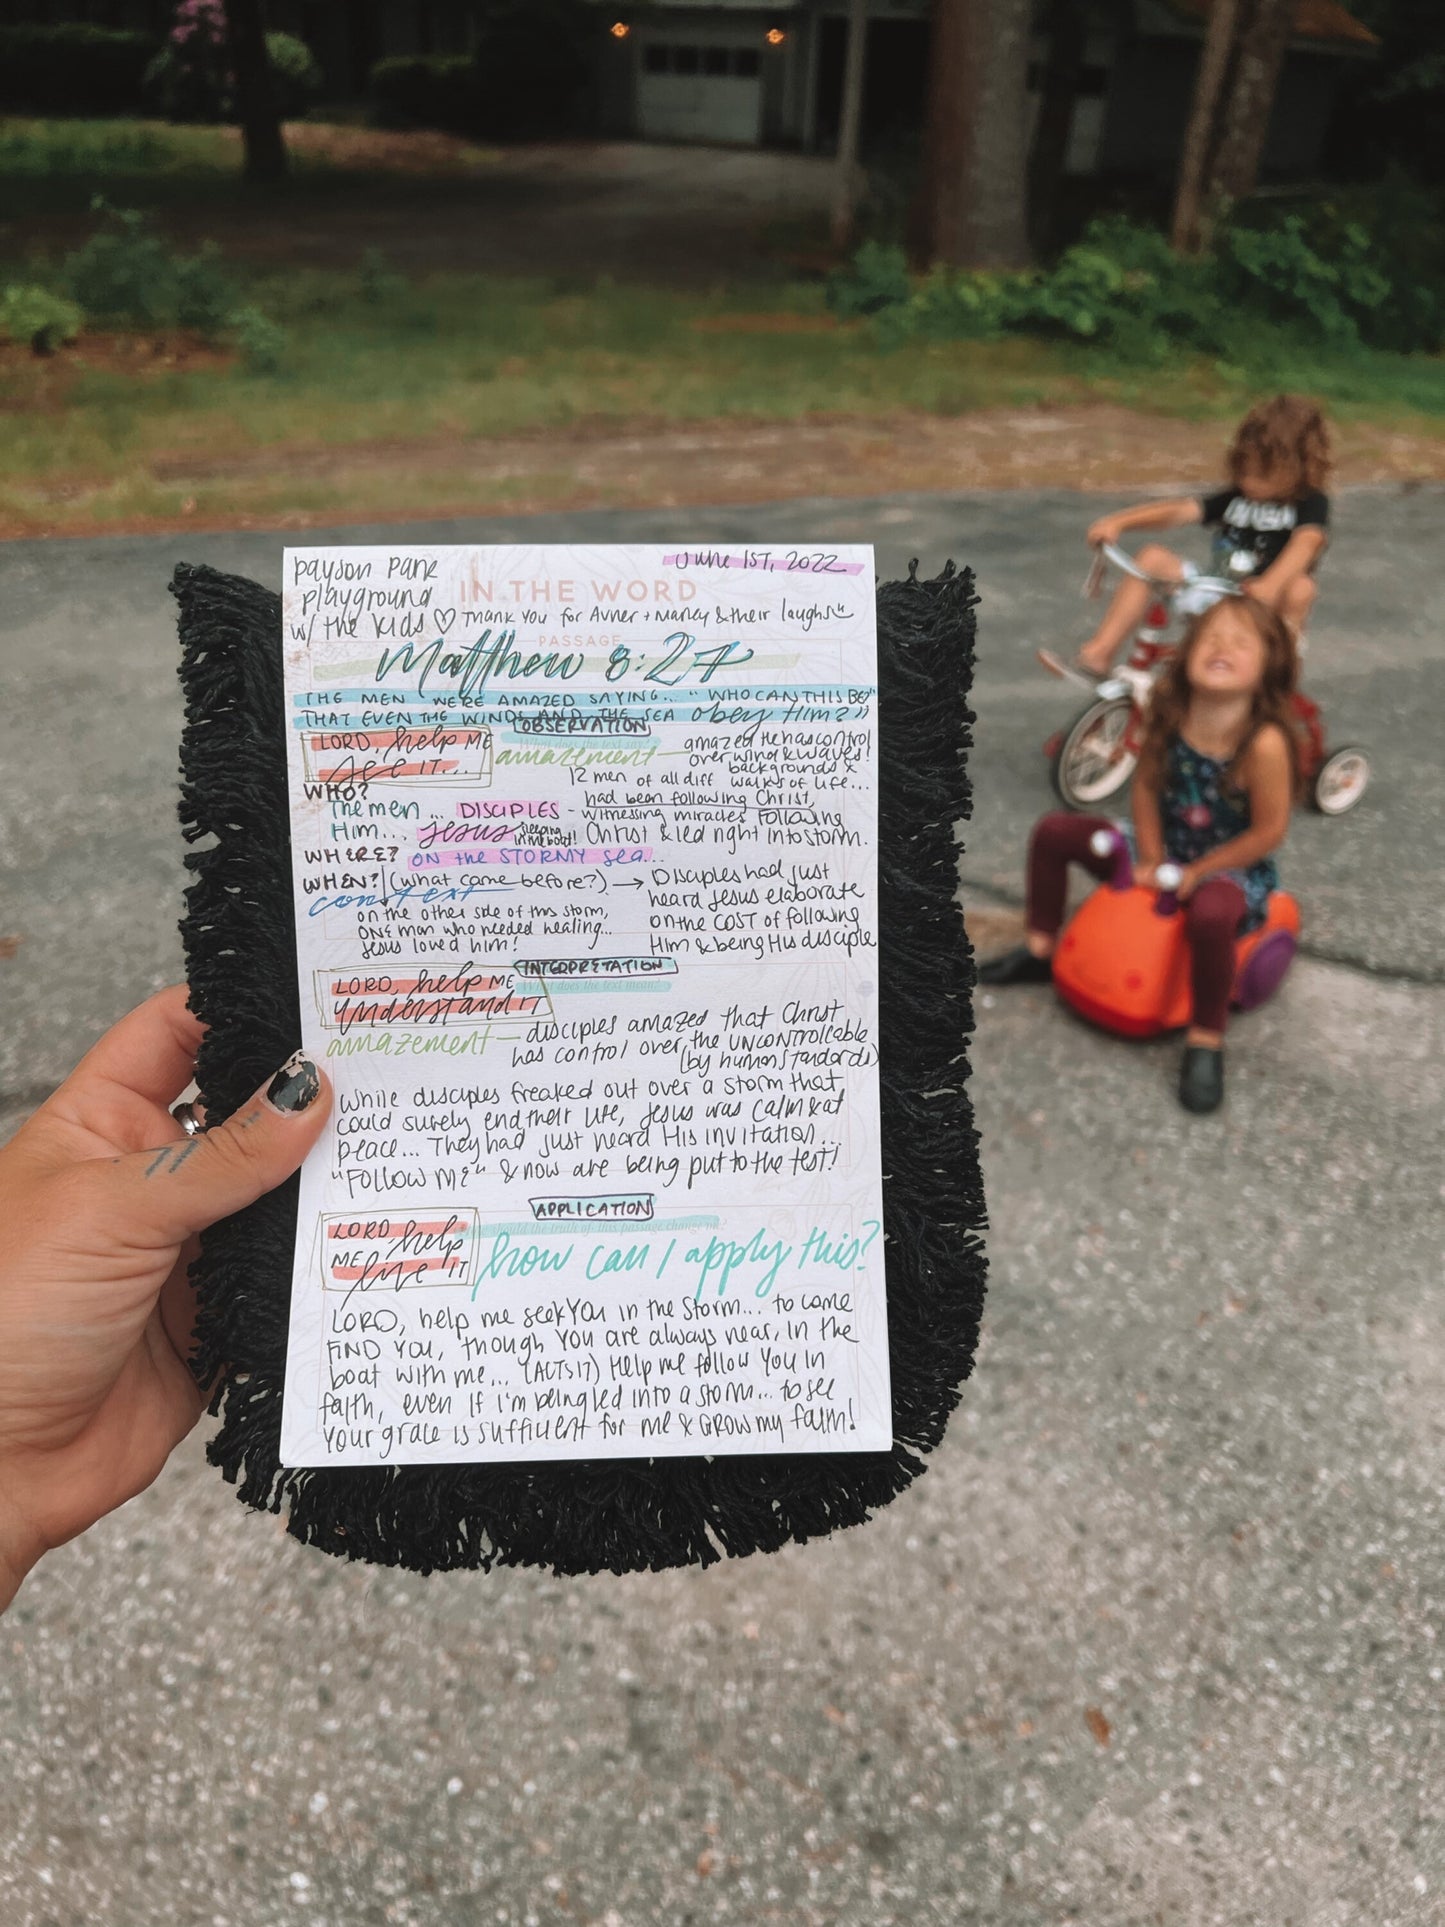 payson park
playground
w/ the kids ♡ Thank you for Avner + Marley & their laughs
June 1st, 2022
IN THE WORD
PASSAGE
Matthew 8:27
THE MEN WERE AMAZED SAYING... "WHO CAN THIS BE?
THAT EVEN THE WINDS AND THE SEA obey Him?"
OBSERVATION
What does the text say?
LORD, help ME
see IT...
amazement — amazed He has control
over wind & waves!
12 men of all diff backgrounds &
walks of life...
WHO?
The men ... DISCIPLES - had been following Christ,
witnessing miracles following
Him... Jesus sleeping in the boat! Christ & led right into storm.
WHERE? ON the STORMY sea...
WHEN? (what came before?) → Disciples had just
context
heard Jesus elaborate
on the COST of following
Him & being His disciple
on the other side of this storm,
ONE man who needed healing...
Jesus loved him!
INTERPRETATION
What does the text mean?
LORD, help ME
understand IT
amazement — disciples amazed that Christ
has control over the UNCONTROLLABLE
(by human standards)
While disciples freaked out over a storm that
could surely end their life, Jesus was calm & at
peace... They had just heard His invitation...
"FOLLOW ME" & now are being put to the test!
APPLICATION
should the truth of this passage change me?
LORD, help
ME live IT
how can I apply this?
LORD, help me seek YOU in the storm... to come
FIND YOU, though YOU are always near, in the
boat with me... (ACTS 17) Help me follow You in
faith, even if i'm being led into a storm... to see
Your grace is sufficient for me & GROW my faith!